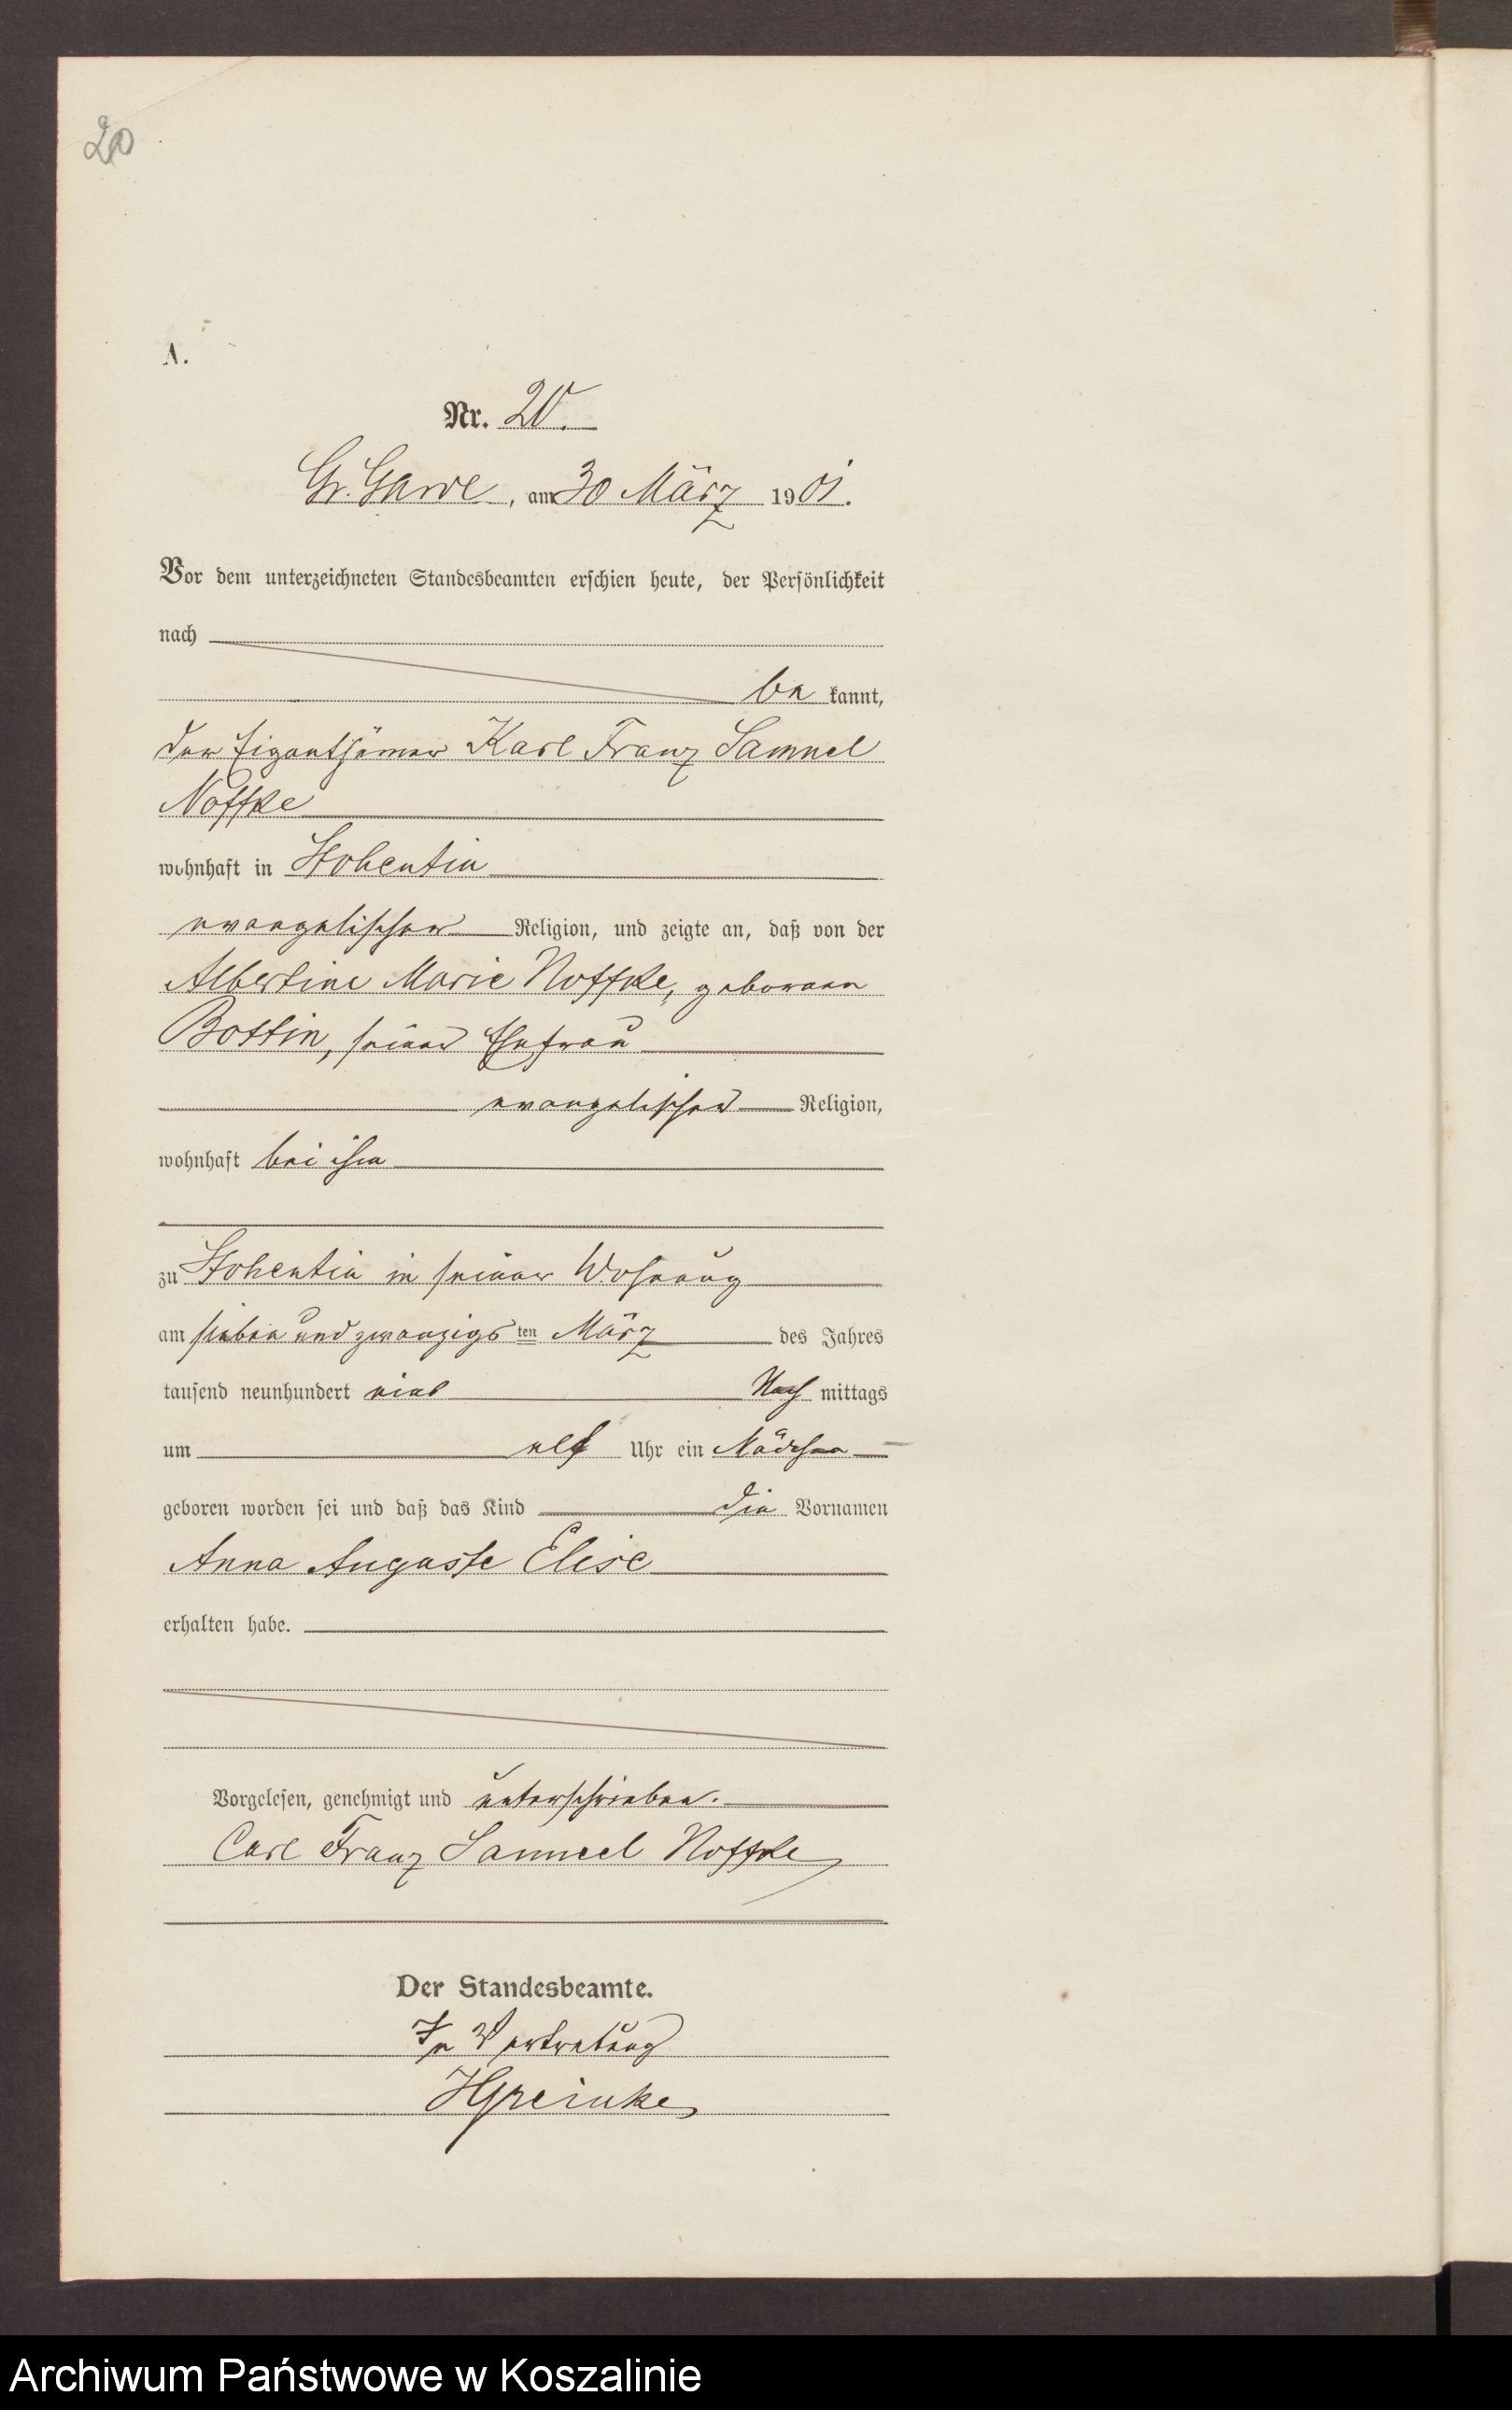 20
A.
Nr. 20.
Gr. Garde, am 30 März 1901.
Vor dem unterzeichneten Standesbeamten erschien heute, der Persönlichkeit
nach
be kannt,
der Eigenthümer Karl Franz Samuel
Noffke
wohnhaft in Stohentin
evangelischer Religion, und zeigte an, daß von der
Albertine Marie Noffke, geborenen
Bottin, seiner Ehefrau
evangelischer Religion,
wohnhaft bei ihm
zu Stohentin in seiner Wohnung
am sieben und zwanzigs ten März des Jahres
tausend neunhundert eins Nach mittags
um elf Uhr ein Mädchen
geboren worden sei und daß das Kind die Vornamen
Anna Auguste Elise
erhalten habe.
Vorgelesen, genehmigt und unterschrieben.
Carl Franz Samueel Noffke
Der Standesbeamte.
In Vertretung
Archiwum Państwowe w Koszalinie